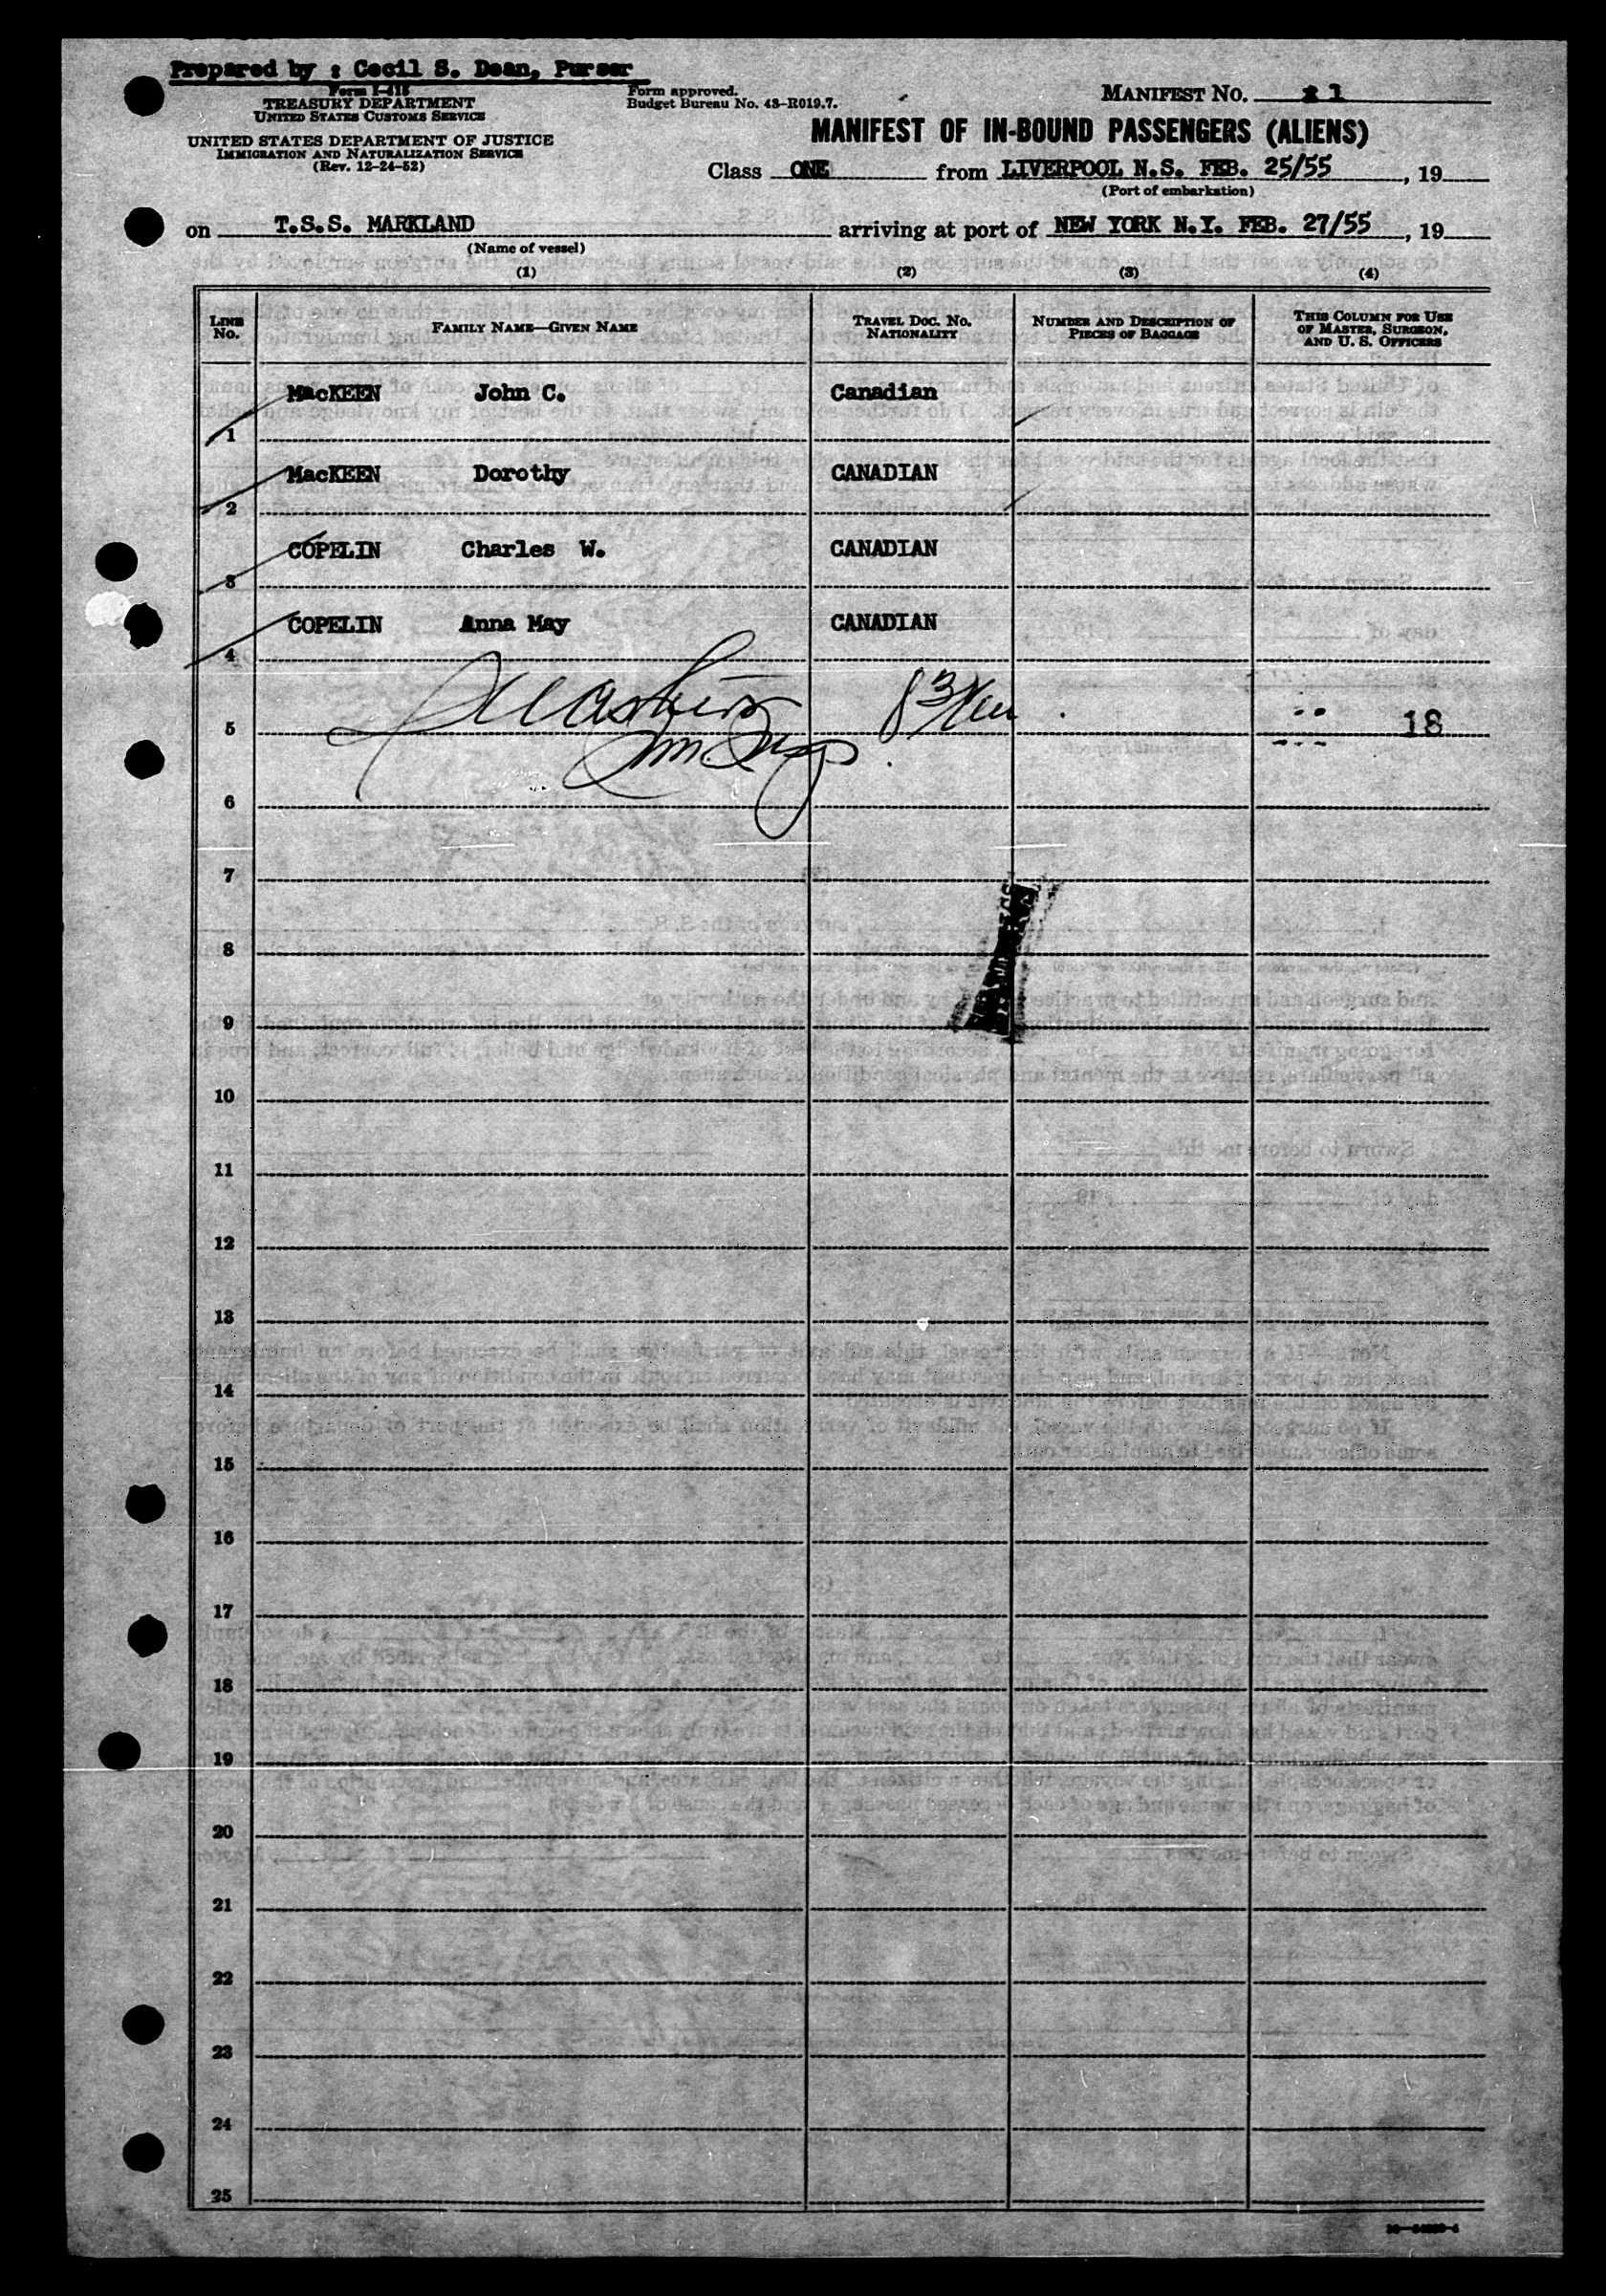 Prepared by : Cecil S. Dean, Purser
Form I-418
TREASURY DEPARTMENT
UNITED STATES CUSTOMS SERVICE
UNITED STATES DEPARTMENT OF JUSTICE
IMMIGRATION AND NATURALIZATION SERVICE
(Rev. 12-24-52)
Form approved.
Budget Bureau No. 43-R019.7.
MANIFEST NO. 21
MANIFEST OF IN-BOUND PASSENGERS (ALIENS)
Class ONE from LIVERPOOL N.S. FEB. 25/55, 19
(Port of embarkation)
on T.S.S. MARKLAND arriving at port of NEW YORK N.Y. FEB. 27/55, 19
(Name of vessel)
(1) (2) (3) (4)
LINE No. FAMILY NAME—GIVEN NAME TRAVEL DOC. NO. NATIONALITY NUMBER AND DESCRIPTION OF PIECES OF BAGGAGE THIS COLUMN FOR USE OF MASTER, SURGEON, AND U. S. OFFICERS
1 MacKEEN John C. Canadian
2 MacKEEN Dorothy CANADIAN
3 COPELIN Charles W. CANADIAN
4 COPELIN Anna May CANADIAN
5 18
6
7
8
9
10
11
12
13
14
15
16
17
18
19
20
21
22
23
24
25